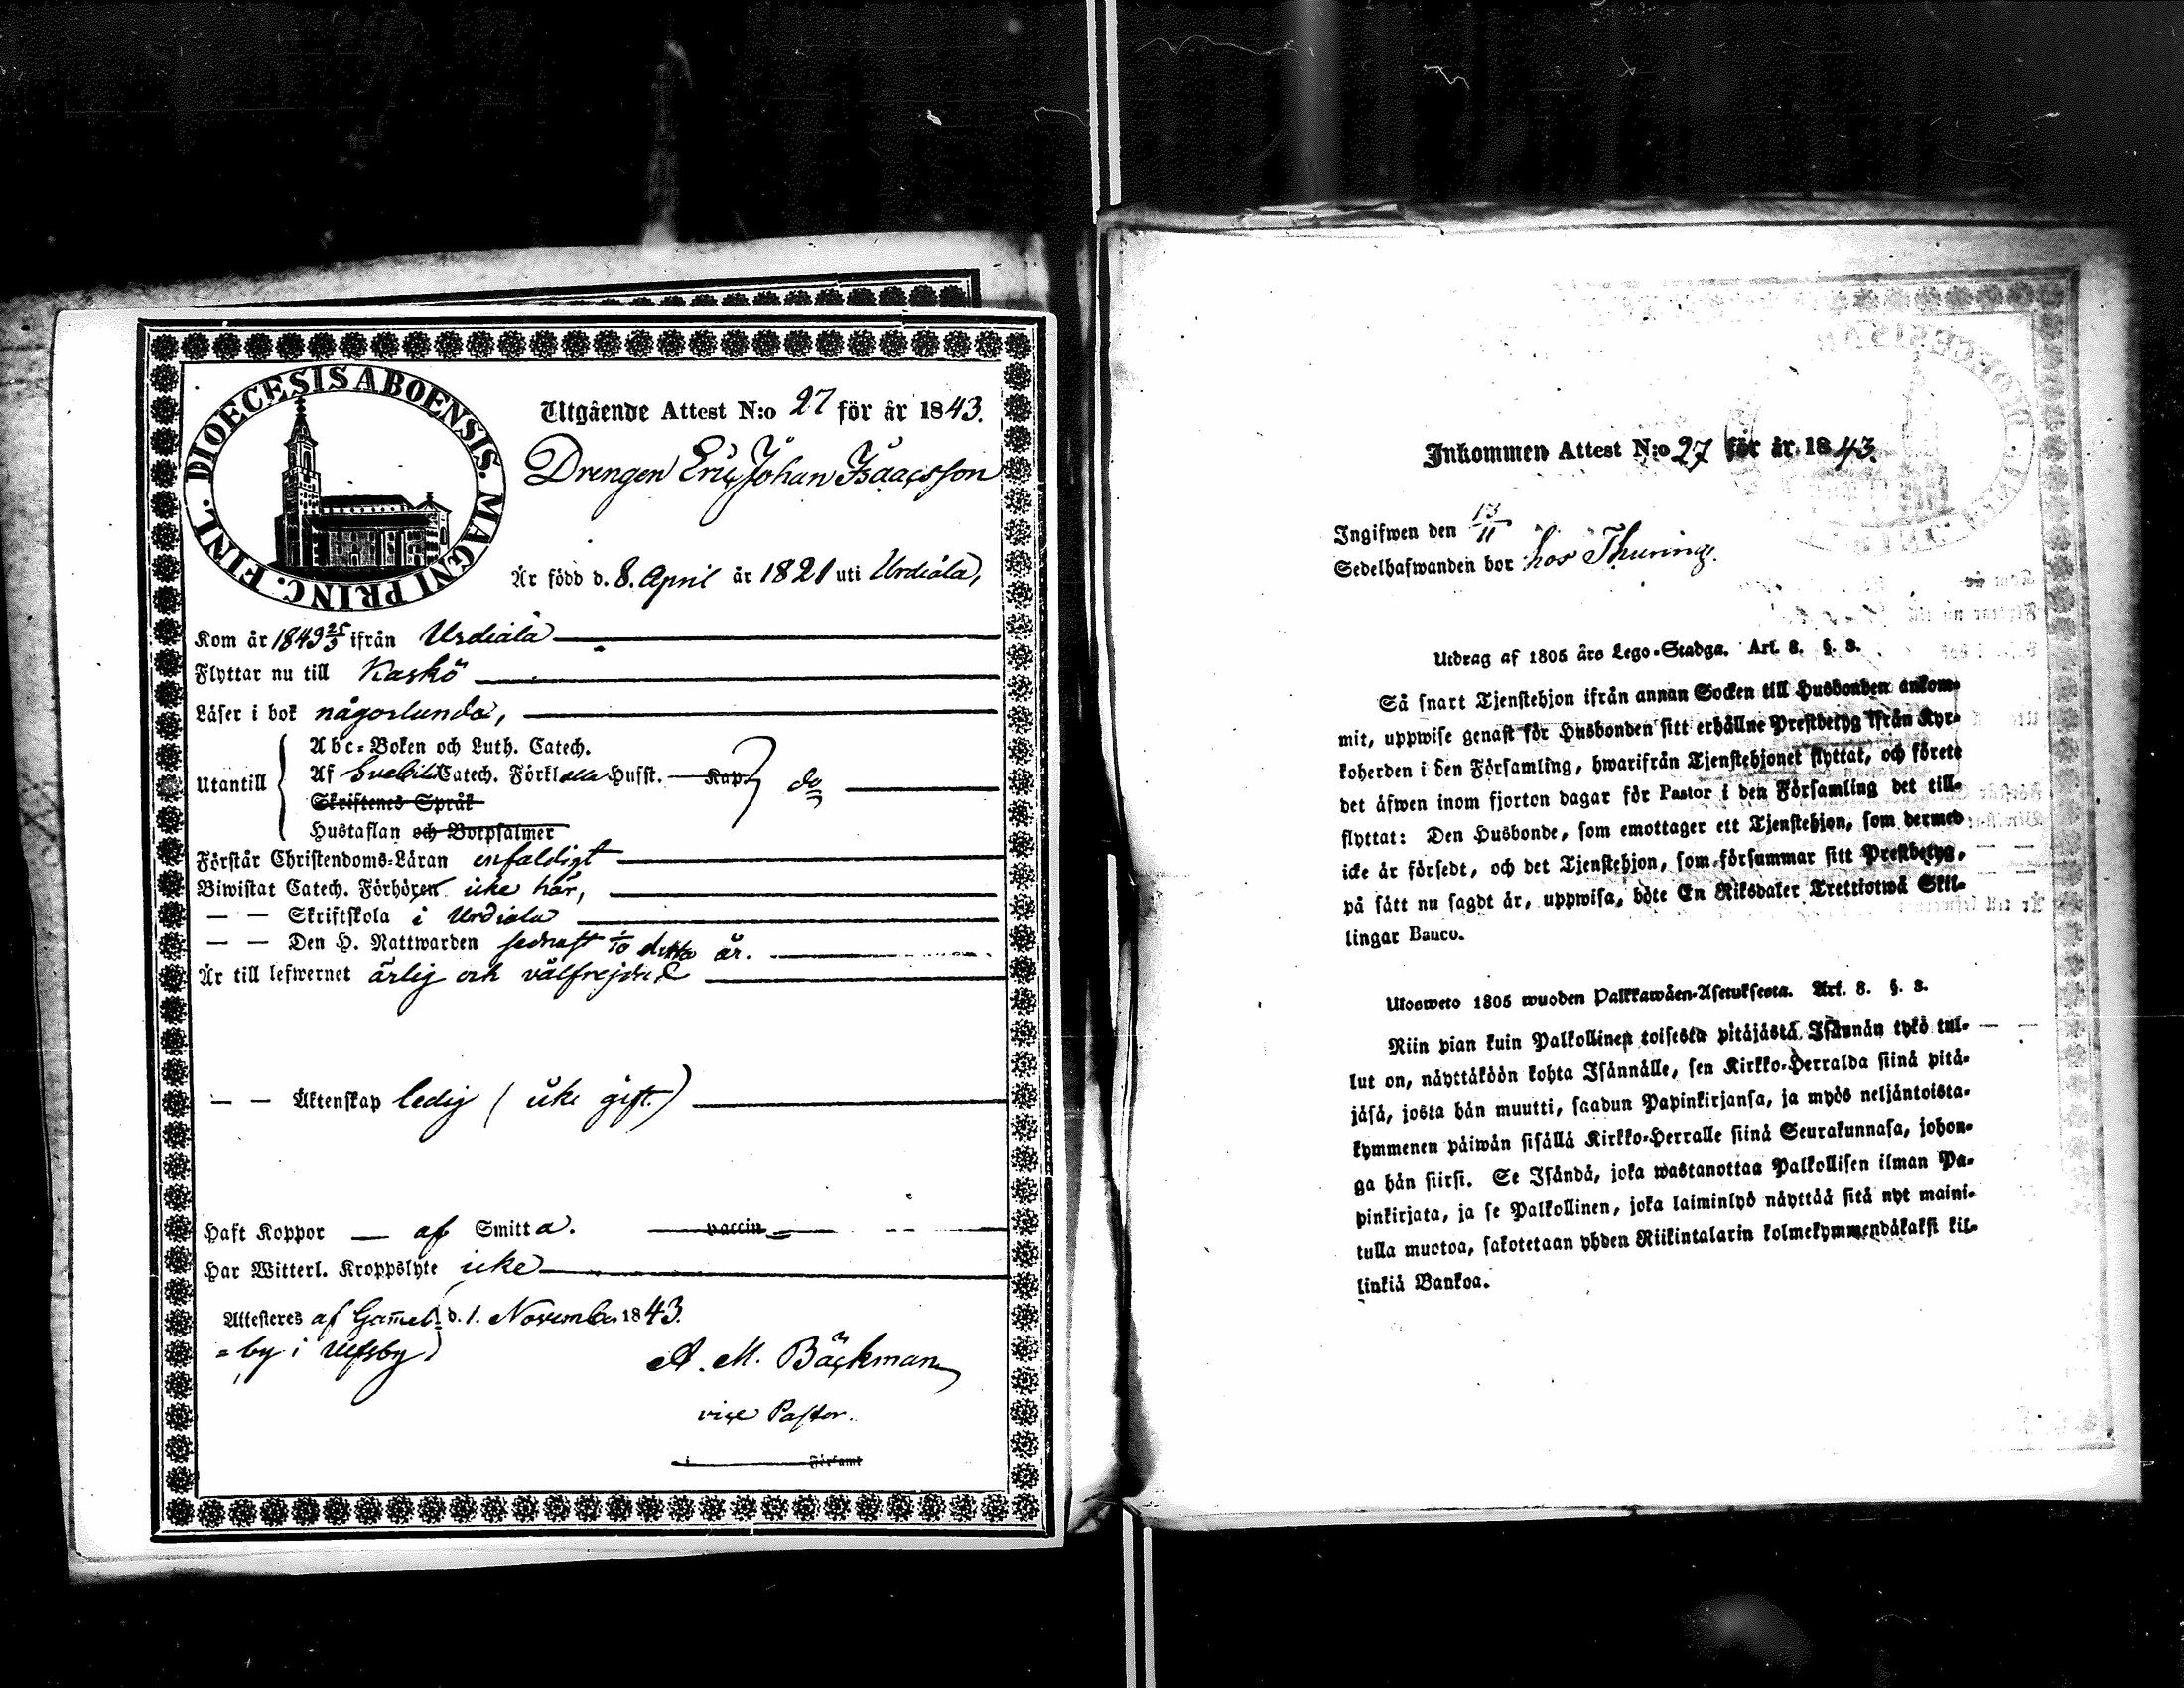 DIOECESIS ABOENSIS. MAGNI PRINC. FINL.
Utgående Attest N:o 27 för år 1843.
Drengen Eric Johan Isaacsson
Är född d. 8. April år 1821 uti Urdiala,
Kom år 1843 25/3 ifrån Urdiala
Flyttar nu till Kaskö
Läser i bok någorlunda,
Utantill
Abc-Boken och Luth. Catech.
Af Svebilii Catech. Förkl alla Hufst. Kap.
do
Skriftenes Språk
Hustaflan och Botpsalmer
Förstår Christendoms-Läran enfaldigt
Biwistat Catech. Förhören icke här,
— — Skriftskola i Urdiala
— — Den H. Nattwarden sednast 1/10 detta år.
Är till lefwernet ärlig och välfrejdad
— — Äktenskap ledig (icke gift.)
Haft Koppor — af Smitta. vaccin
Har Witterl. Kroppslyte icke
Attesteres af Gamel= d. 1. November 1843.
=by i Ulfsby
A. M. Bäckman
vice Pastor.
i Församl
Inkommen Attest N:o 27 för år 1843.
Ingifwen den 13/11
Sedelhafwanden bor hos Thuring.
Utdrag af 1805 års Lego-Stadga. Art. 8. §. 3.
Så snart Tjenstehjon ifrån annan Socken till Husbonden ankom-
mit, uppwise genast för Husbonden sitt erhållne Prestbetyg ifrån Kyr-
koherden i den Församling, hwarifrån Tjenstehjonet flyttat, och förete
det äfwen inom fjorton dagar för Pastor i den Församling det till-
flyttat: Den Husbonde, som emottager ett Tjenstehjon, som dermed
icke är försedt, och det Tjenstehjon, som försummar sitt Prestbetyg,
på sätt nu sagdt är, uppwisa, böte En Riksdaler Trettiotwå Skil-
lingar Banco.
Ulosweto 1805 wuoden Palkkawäen-Asetuksesta. Art. 8. §. 3.
Niin pian kuin Palkollinen toisesta pitäjästä Isännän tykö tul-
lut on, näyttäköön kohta Isännälle, sen Kirkko-Herralda siinä pitä-
jäsä, josta hän muutti, saadun Papinkirjansa, ja myös neljäntoista-
kymmenen päiwän sisällä Kirkko-Herralle siinä Seurakunnasa, johon-
ga hän siirsi. Se Isändä, joka wastanottaa Palkollisen ilman Pa-
pinkirjata, ja se Palkollinen, joka laiminlyö näyttää sitä nyt maini-
tulla muotoa, sakotetaan yhden Riikintalarin kolmekymmendäkaksi kil-
linkiä Bankoa.